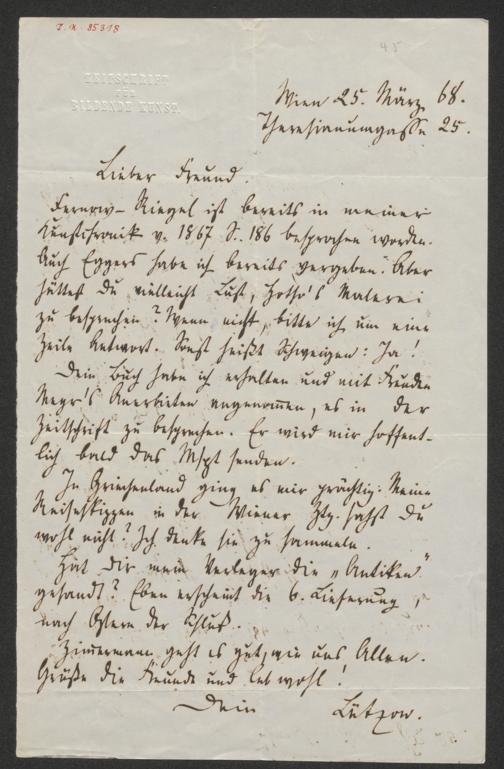 I. N. 85318
45
ZEITSCHRIFT
FÜR
BILDENDE KUNST.
Wien 25. März 68.
Theresianumgasse 25.
Lieber Freund.
Fernow-Riegel ist bereits in meiner
Kunstchronik v. 1867 S. 186 besprochen worden.
Auch Eggers habe ich bereits vergeben. Aber
hättest Du vielleicht Lust, Hotho's Malerei
zu besprechen? Wenn nicht, bitte ich um eine
Zeile Antwort. Sonst heißt Schweigen: Ja!
Dein Buch habe ich erhalten und mit Freuden
Anerbieten angenom̄en, es in der
Zeitschrift zu besprechen. Er wird mir hoffent-
lich bald das Mspt senden.
In Griechenland ging es mir prächtig. Meine
Reiseskizzen in der Wiener Ztg. sahst Du
wohl nicht? Ich denke sie zu sammeln.
Hat Dir mein Verleger die „Antiken"
gesandt? Eben erscheint die 6. Lieferung,
nach Ostern der Schluß.
Zimermann geht es gut, wie uns Allen.
Grüße die Freunde und leb wohl!
Dein Lützow.